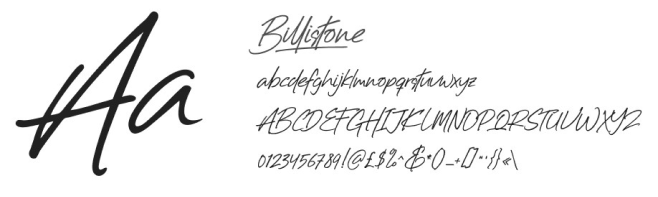 Aa
Billistone
abcdefghijklmnopqrstuvwxyz
ABCDEFGHIJKLMNOPQRSTUVWXYZ
0123456789!@£$%^&*()_+[]"'{}«\